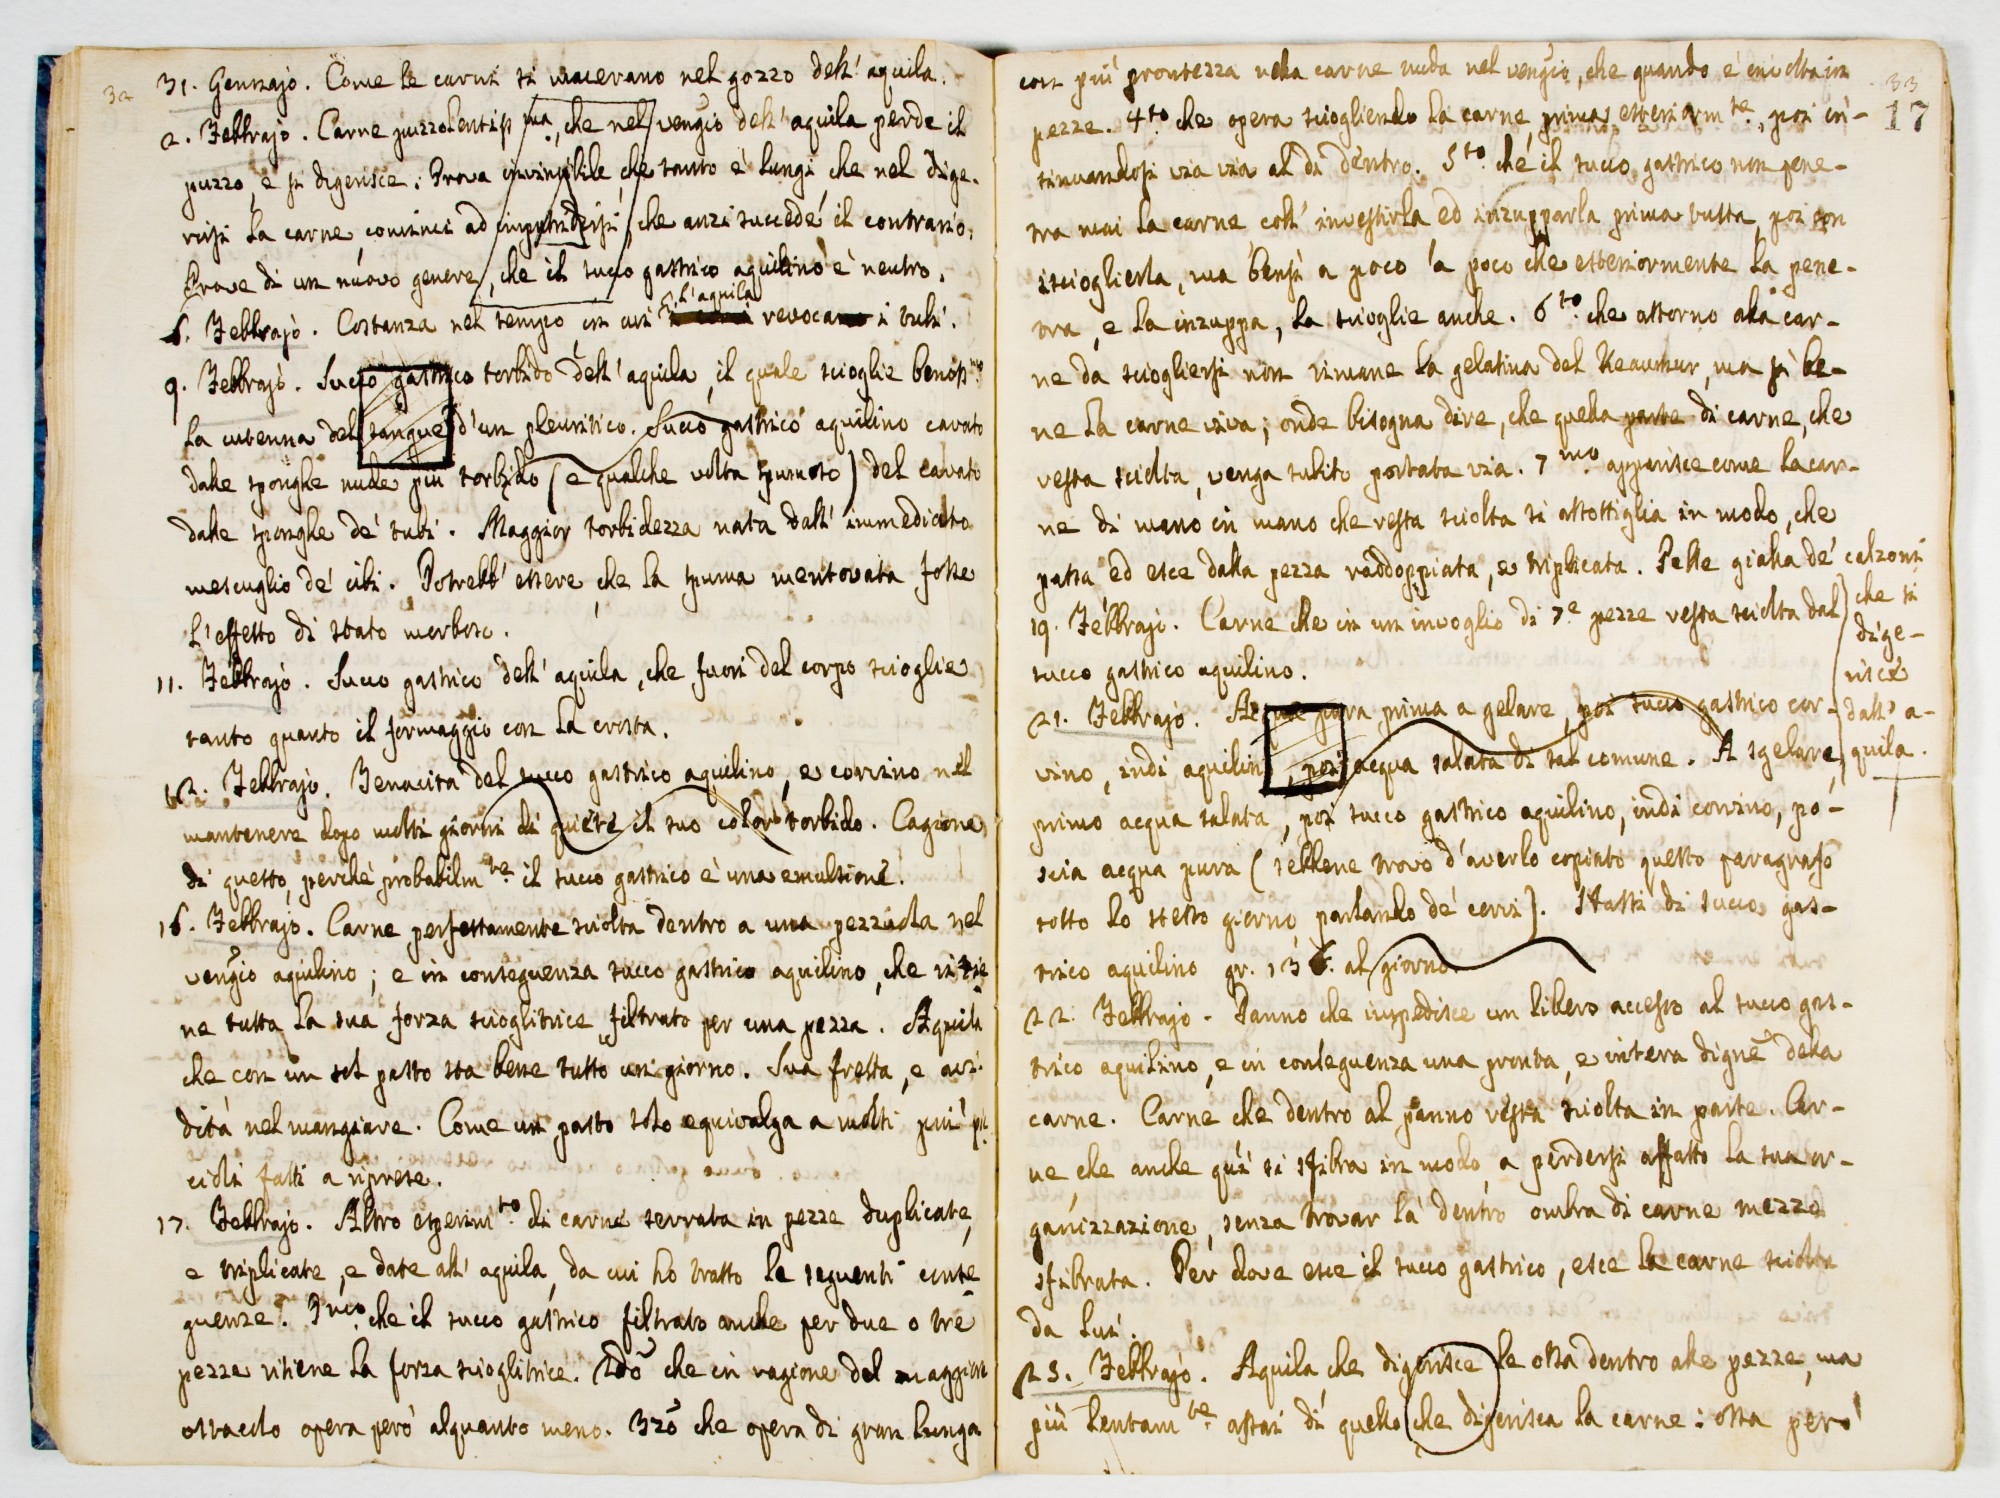 32
31. Gennajo. Come le carni si macerano nel gozzo dell' aquila.
2. Febbrajo. Carne puzzolentiss ma, che nel vengio dell' aquila perde il
puzzo, e si digerisce. Prova invincibile, che tanto è lungi, che nel dige-
rirsi la carne, cominci ad imputridirsi, che anzi succede il contrario.
Prove di un nuovo genere, che il succo gastrico aquilino è neutro.
6. Febbrajo. Costanza nel tempo in cui l'aquila revoca i tubi.
9. Febbrajo. Succo gastrico torbido dell' aquila, il quale scioglie beniss mo
la cutenna del sangue d'un pleuritico. Succo gastrico aquilino cavato
dalle sponghe nude più torbido (e qualche volta spumoso) del cavato
dalle sponghe de' tubi. Maggior torbidezza nata dall' immediato
mescuglio de' cibi. Potrebb' essere, che la spuma mentovata fosse
l'effetto di stato morboso.
11. Febbrajo. Succo gastrico dell' aquila, che fuori del corpo scioglie
tanto quanto il formaggio con la crosta.
12. Febbrajo. Tenacità del succo gastrico aquilino, e corvino nel
mantenere dopo molti giorni di quiete il suo color torbido. Cagione
di questo, perchè probabilm te il succo gastrico è una emulsione.
16. Febbrajo. Carne perfettamente sciolta dentro a una pezzuola nel
vengio aquilino; e in conseguenza succo gastrico aquilino, che ritie
ne tutta la sua forza scioglitrice filtrato per una pezza. Aquila
che con un sol pasto sta bene tutto un giorno. Sua fretta, e avi-
dità nel mangiare. Come un pasto solo equivalga a molti più pic
cioli fatti a riprese.
17. Febbrajo. Altro esperim to di carne serrata in pezze duplicate,
e triplicate, e date all' aquila, da cui ho tratto le seguenti conse
guenze. Pmo che il succo gastrico filtrato anche per due o tre
pezze ritiene la forza scioglitrice. 2do che in ragione del maggiore
ostacolo opera però alquanto meno. 3zo che opera di gran lunga
33
17
con più prontezza nella carne nuda nel vengio, che quando è involta in
pezze. 4to che opera sciogliendo la carne prima esteriorm te, poi in-
sinuandosi via via al di dentro. 5to che il succo gastrico non pene-
tra mai la carne coll' investirla ed inzupparla prima tutta, poi con
iscioglierla, ma bensì a poco a poco che esteriormente la pene-
tra, e la inzuppa, la scioglie anche. 6to che attorno alla car-
ne da sciogliersi non rimane la gelatina del Reaumur, ma sì be-
ne la carne viva; onde bisogna dire, che quella parte di carne, che
resta sciolta, venga subito portata via. 7mo apparisce come la car-
ne di mano in mano che resta sciolta si assottiglia in modo, che
passa ed esce dalla pezza raddoppiata, e triplicata. Pelle gialla de' calzoni
che si
dige-
risce
dall' a-
quila.
19. Febbrajo. Carne che in un involglio di 7e pezze resta sciolta dal
succo gastrico aquilino.
21. Febbrajo. Acque pura prima a gelare, poi succo gastrico cor-
vino, indi aquilino, poi acqua salata di sal comune. A sgelare,
primo acqua salata, poi succo gastrico aquilino, indi corvino, po-
scia acqua pura (sebbene trovo d'averlo copiato questo paragrafo
sotto lo stesso giorno parlando de' corvi). Stassi di succo gas-
trico aquilino gr. 136. al giorno
22. Febbrajo. Panno che impedisce un libero accesso al succo gas-
trico aquilino, e in conseguenza una pronta, e intera digne della
carne. Carne che dentro al panno resta sciolta in parte. Car-
ne, che anche quì si sfibra in modo, a perdersi affatto la sua or-
ganizzazione, senza trovar là dentro ombra di carne mezzo
sfibrata. Per dove esce il succo gastrico, esce la carne sciolta
da lui.
23. Febbrajo. Aquila che digerisce le ossa dentro alle pezze, ma
più lentam te assai di quello che digerisca la carne: ossa però